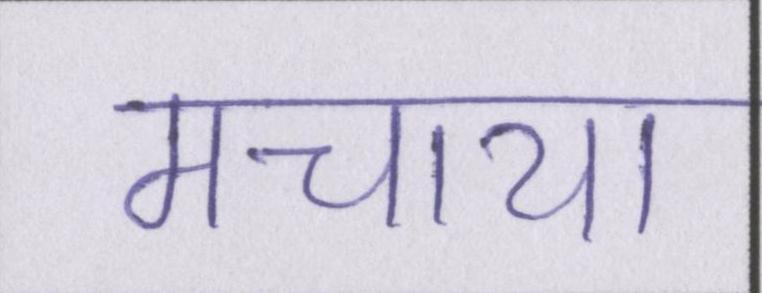 मचाया